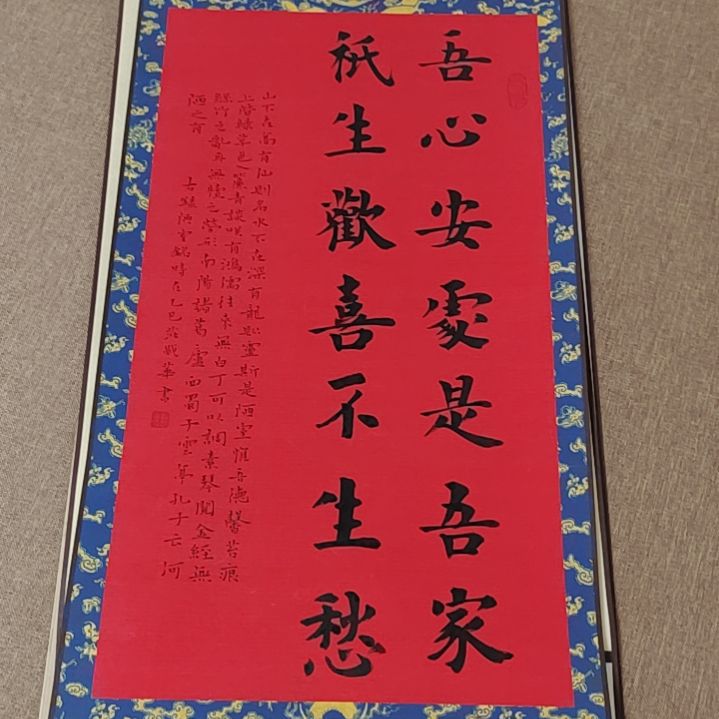 吾心安處是吾家
祇生歡喜不生愁
山不在高有仙則名水不在深有龍則靈斯是陋室惟吾德馨苔痕
上階緑草色入簾青談笑有鴻儒往來無白丁可以調素琴閱金經無
絲竹之亂耳無牘之勞形南陽諸葛廬西蜀子雲亭孔子云何
陋之有 陋室銘時在乙巳 華書